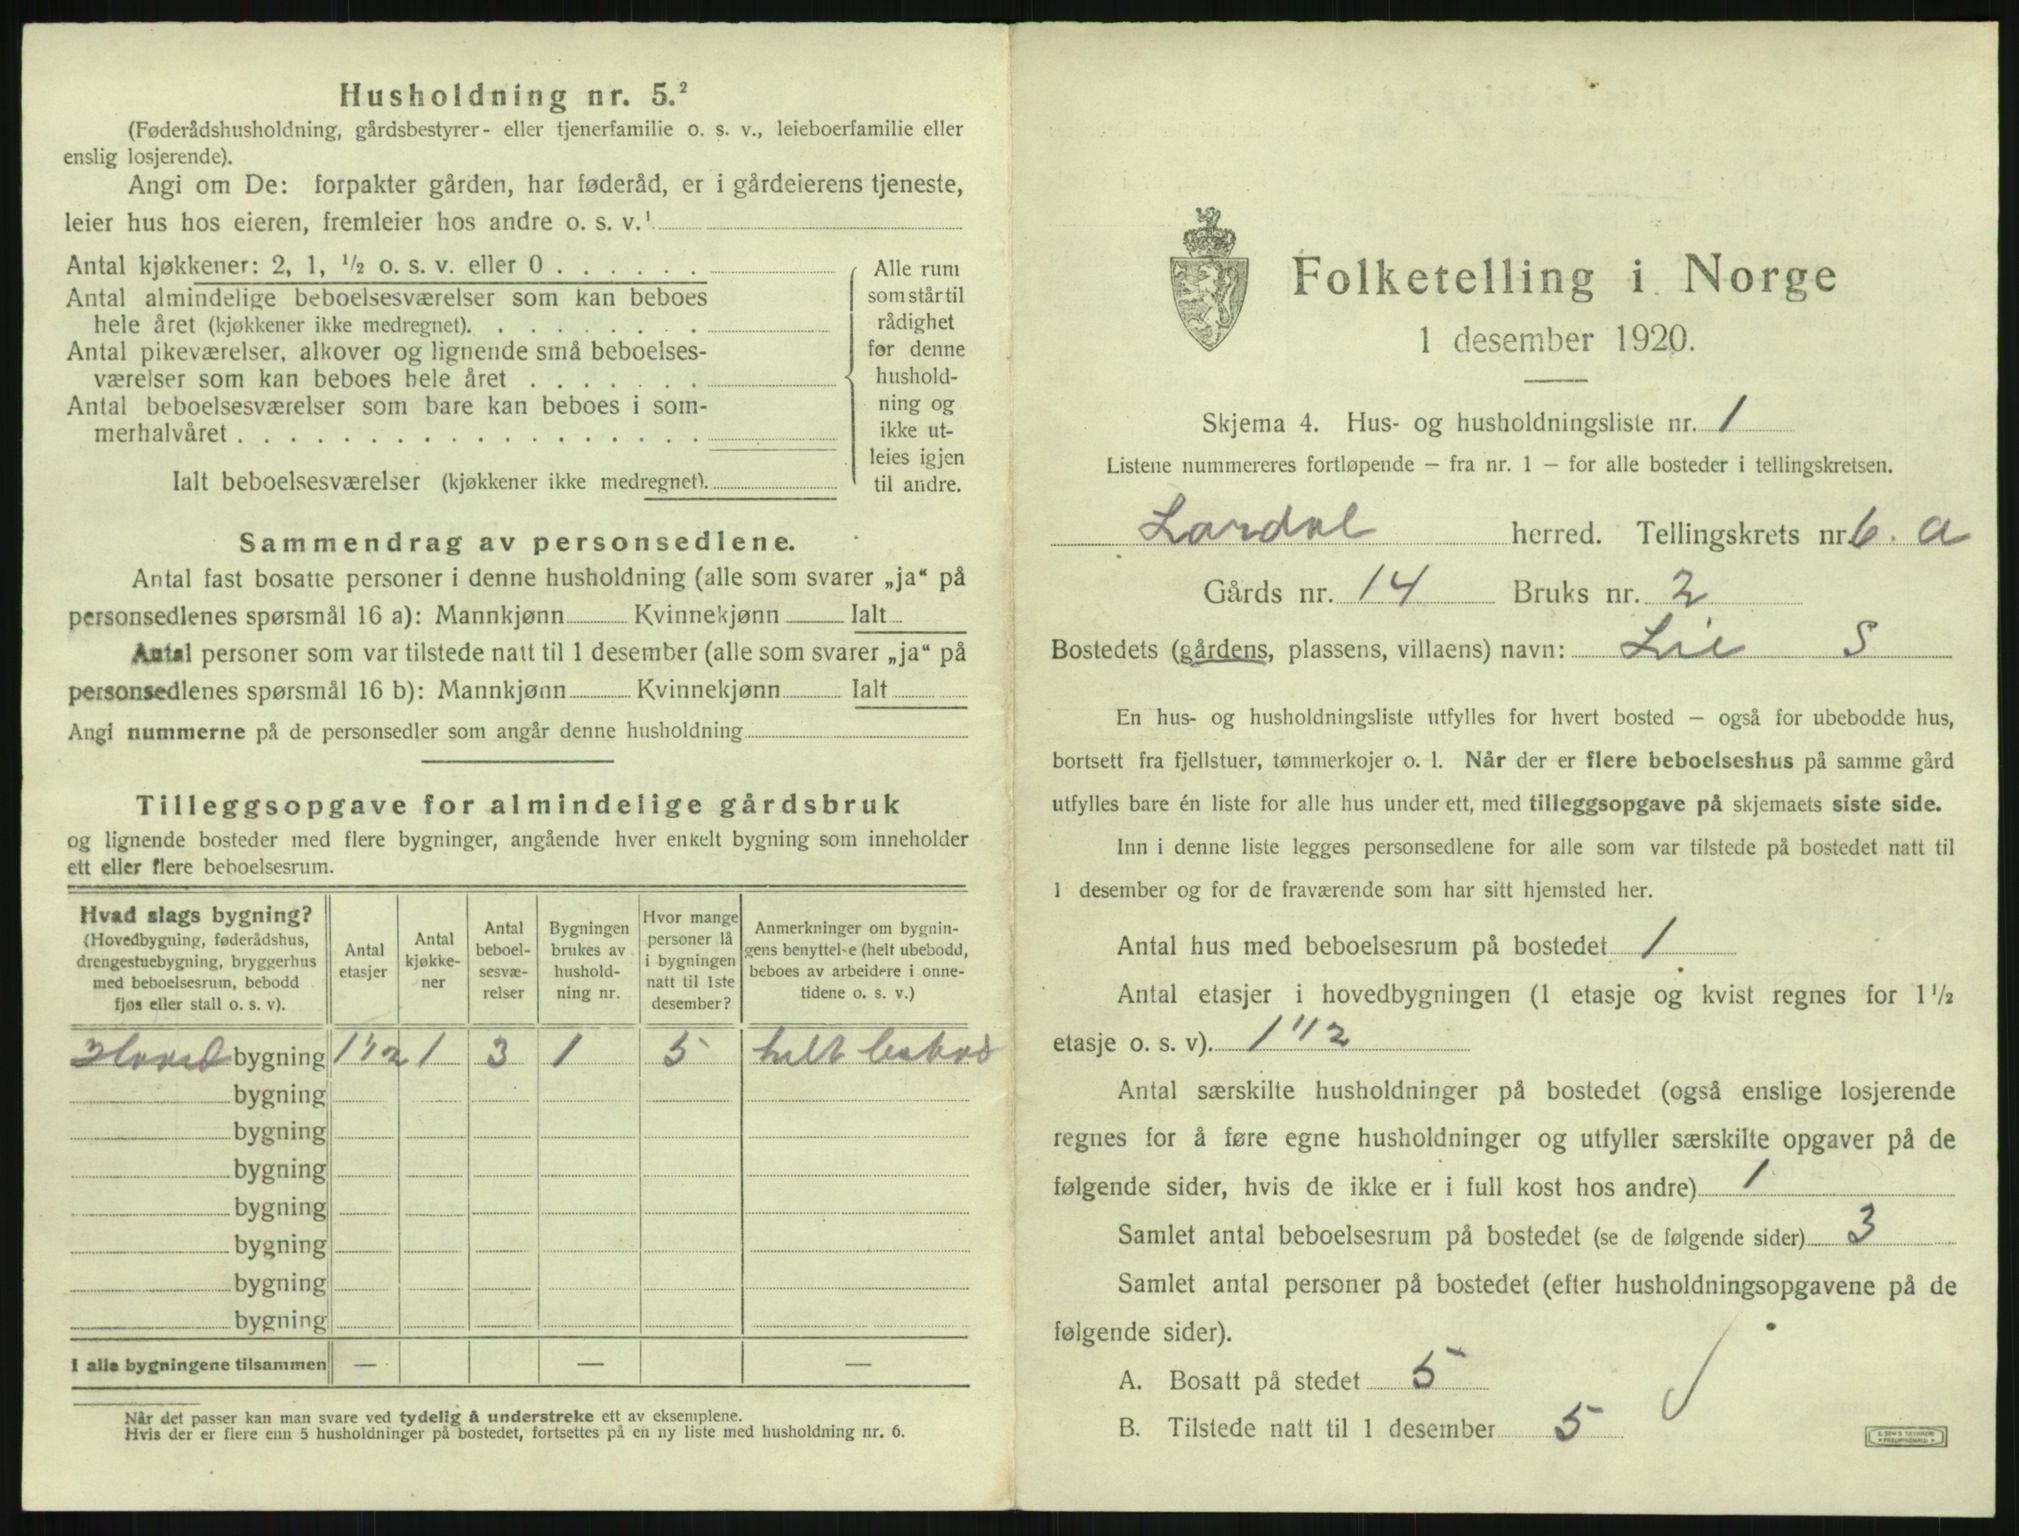 Husholdning nr. 5.²
(Føderådshusholdning, gårdsbestyrer- eller tjenerfamilie o. s. v., leieboerfamilie eller
enslig losjerende).
Angi om De: forpakter gården, har føderåd, er i gårdeierens tjeneste,
leier hus hos eieren, fremleier hos andre o. s. v.¹
Antal kjøkkener: 2, 1, ½ o. s. v. eller 0 . . . . . .
Antal almindelige beboelsesværelser som kan beboes
hele året (kjøkkener ikke medregnet). . . . . . . . .
Antal pikeværelser, alkover og lignende små beboelses-
værelser som kan beboes hele året . . . . . . .
Antal beboelsesværelser som bare kan beboes i som-
merhalvåret . . . . . . . . . . . . . . . . . .
Ialt beboelsesværelser (kjøkkener ikke medregnet).
Alle rum
som står til
rådighet
for denne
hushold-
ning og
ikke ut-
leies igjen
til andre.
Sammendrag av personsedlene.
Antal fast bosatte personer i denne husholdning (alle som svarer „ja“ på
personsedlenes spørsmål 16 a): Mannkjønn Kvinnekjønn Ialt
Antal personer som var tilstede natt til 1 desember (alle som svarer „ja“ på
personsedlenes spørsmål 16 b): Mannkjønn Kvinnekjønn Ialt
Angi nummerne på de personsedler som angår denne husholdning
Tilleggsopgave for almindelige gårdsbruk
og lignende bosteder med flere bygninger, angående hver enkelt bygning som inneholder
ett eller flere beboelsesrum.
Hvad slags bygning?
(Hovedbygning, føderådshus,
drengestuebygning, bryggerhus
med beboelsesrum, bebodd
fjøs eller stall o. s. v).
Antal
etasjer
Antal
kjøkke-
ner
Antal
beboel-
sesvæ-
relser
Bygningen
brukes av
hushold-
ning nr.
Hvor mange
personer lå
i bygningen
natt til 1ste
desember?
Anmerkninger om bygnin-
gens benyttelse (helt ubebodd,
beboes av arbeidere i onne-
tidene o. s. v.)
Hoved bygning 1 1/2 1 3 1 5 helt bebod
bygning
bygning
bygning
bygning
bygning
bygning
bygning
I alle bygningene tilsammen — — —
Når det passer kan man svare ved tydelig å understreke ett av eksemplene.
Hvis der er flere enn 5 husholdninger på bostedet, fortsettes på en ny liste med husholdning nr. 6.
Folketelling i Norge
1 desember 1920.
Skjema 4. Hus- og husholdningsliste nr. 1
Listene nummereres fortløpende – fra nr. 1 – for alle bosteder i tellingskretsen.
Lardal herred. Tellingskrets nr. 6. a
Gårds nr. 14 Bruks nr. 2
Bostedets (gårdens, plassens, villaens) navn: Lie S
En hus- og husholdningsliste utfylles for hvert bosted – også for ubebodde hus,
bortsett fra fjellstuer, tømmerkojer o. l. Når der er flere beboelseshus på samme gård
utfylles bare én liste for alle hus under ett, med tilleggsopgave på skjemaets siste side.
Inn i denne liste legges personsedlene for alle som var tilstede på bostedet natt til
1 desember og for de fraværende som har sitt hjemsted her.
Antal hus med beboelsesrum på bostedet 1
Antal etasjer i hovedbygningen (1 etasje og kvist regnes for 1½
etasje o. s. v). 1 1/2
Antal særskilte husholdninger på bostedet (også enslige losjerende
regnes for å føre egne husholdninger og utfyller særskilte opgaver på de
følgende sider, hvis de ikke er i full kost hos andre) 1
Samlet antal beboelsesrum på bostedet (se de følgende sider) 3
Samlet antal personer på bostedet (efter husholdningsopgavene på de
følgende sider).
A. Bosatt på stedet 5
B. Tilstede natt til 1 desember 5